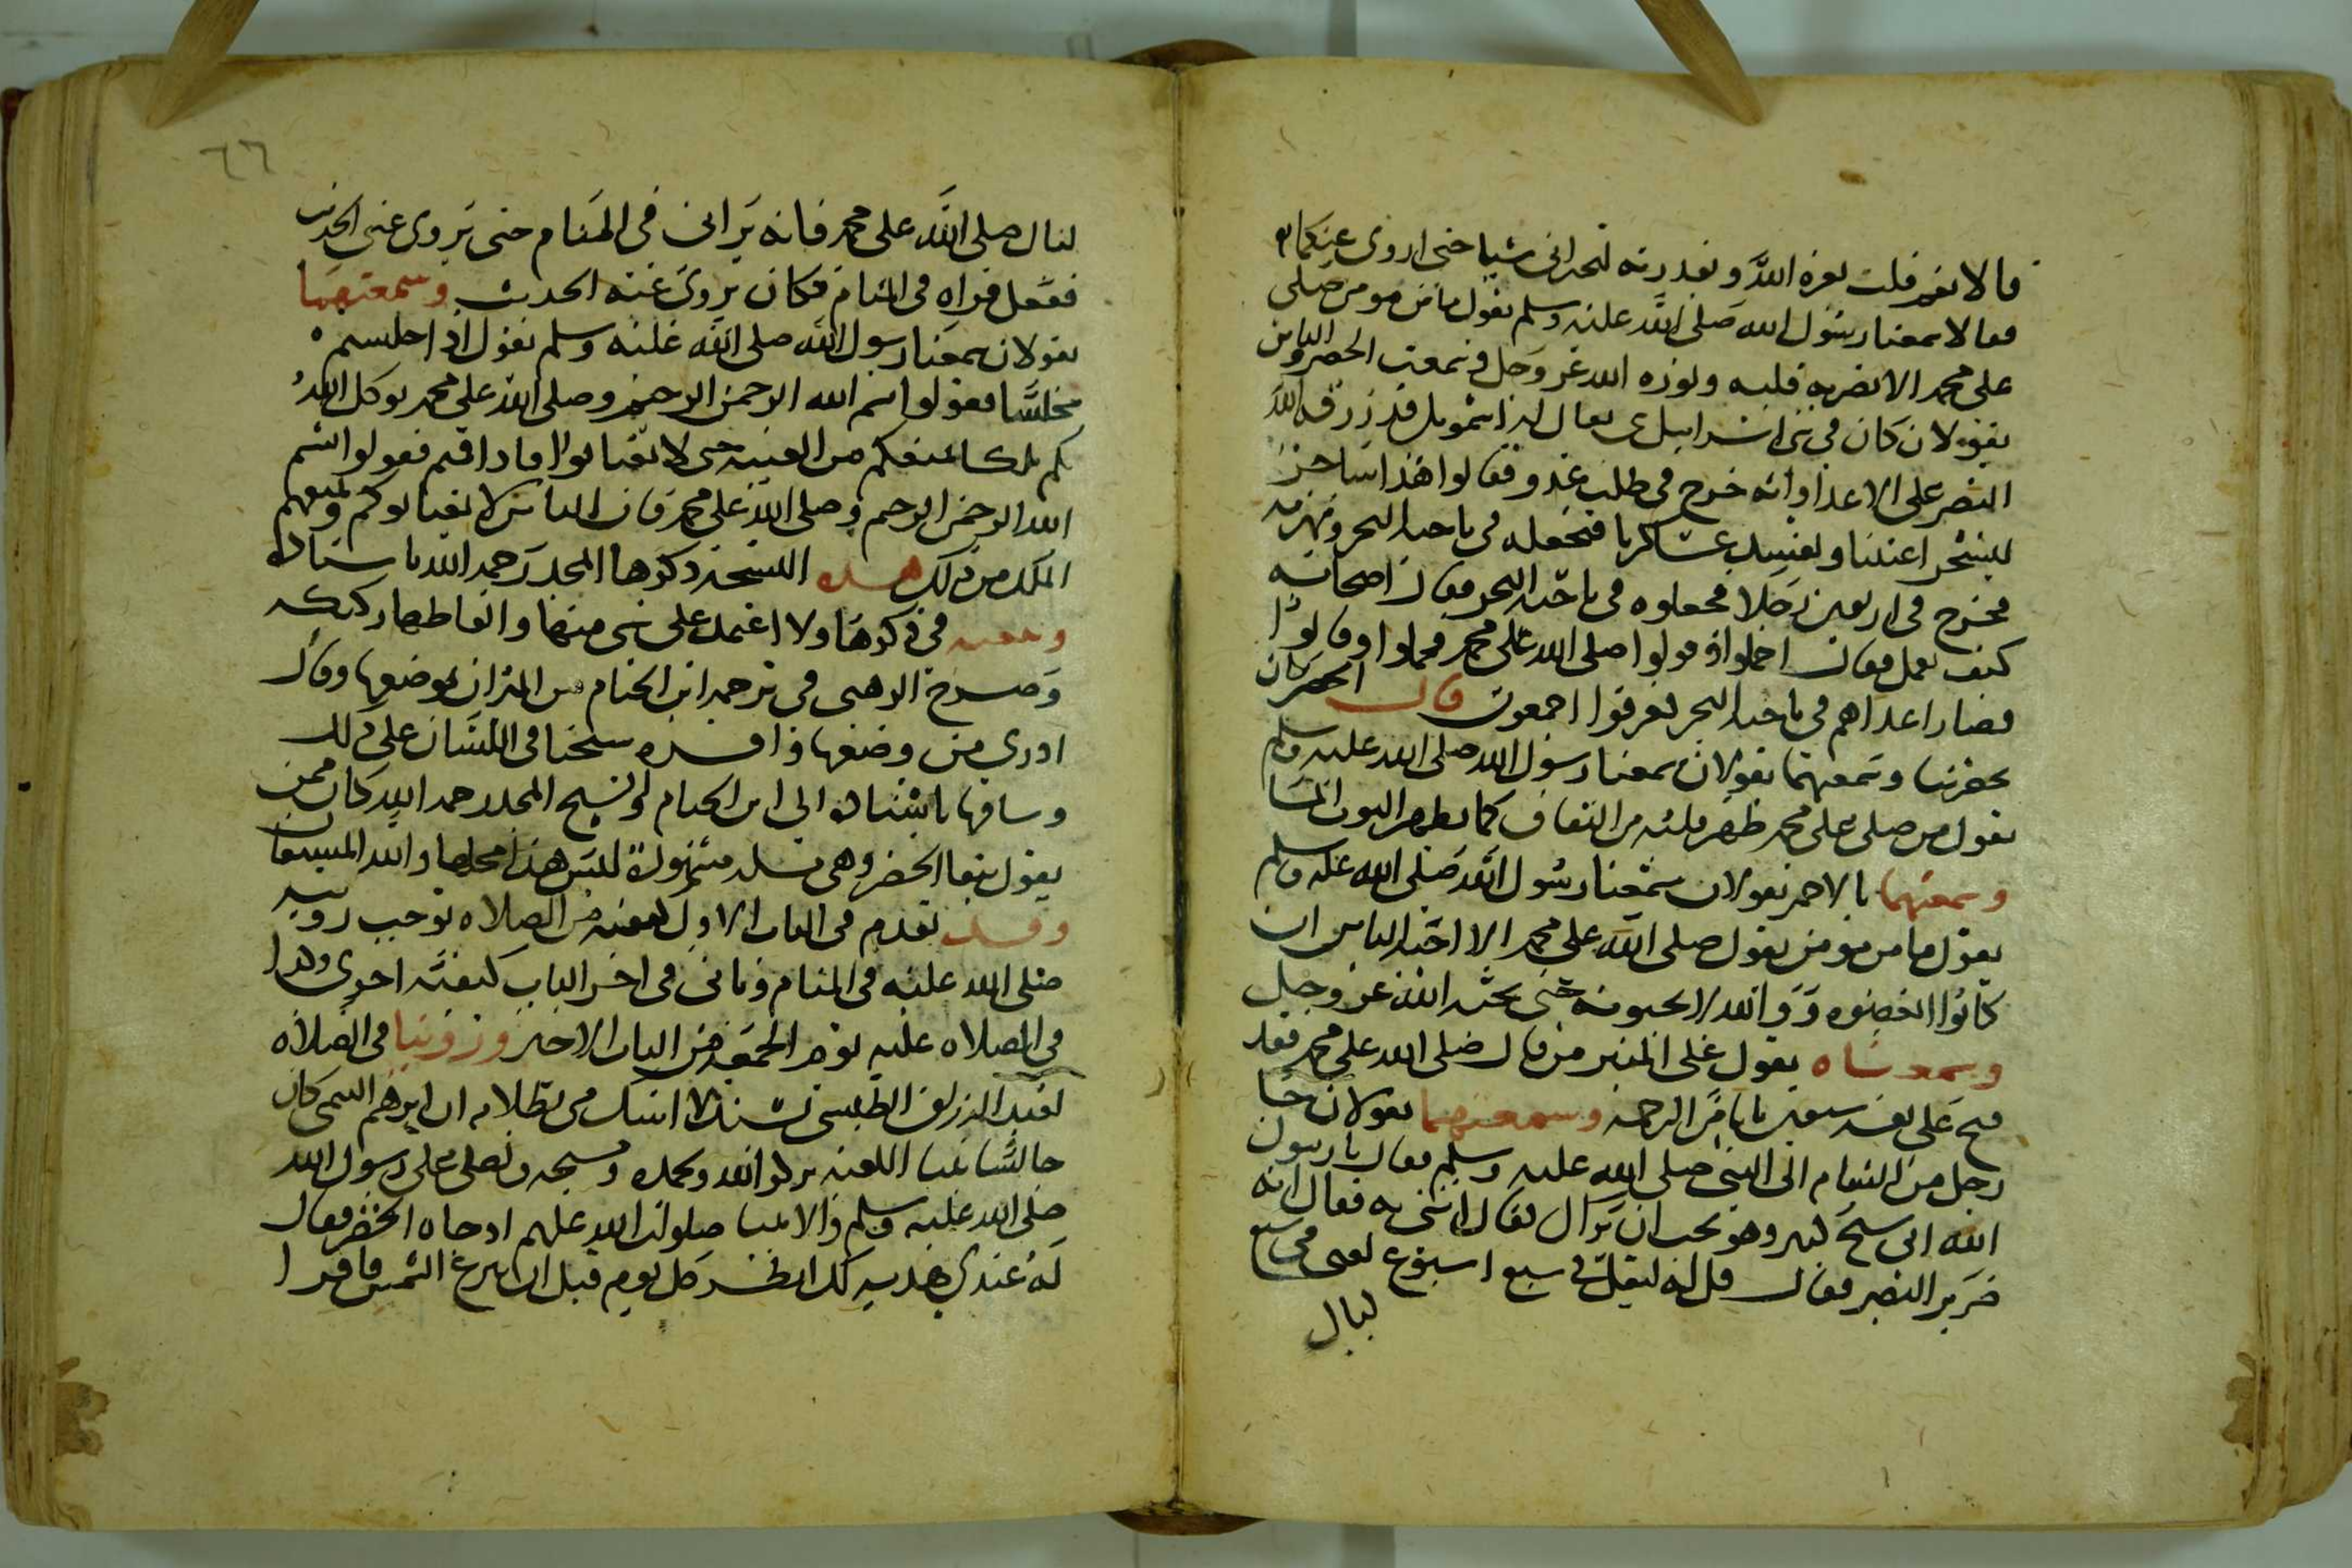 قالا نعم قلت بعزة الله وبقدرته لتخبراني شيا حتى اروى عنكما به
فقالا سمعنا رسول الله صلى الله عليه وسلم يقول ما من مومن صلى
على محمد الا نضر به قلبه ونوره الله عز وجل وسمعت الخضر والياس
يقولان كان في بني اسرائيل نبي يقال له اشمويل قد رزقه الله
النصر على الاعدا وانه خرج في طلب عدو فقالوا هذا ساحر
ليسحر اعيننا ويفسد عساكرنا فنجعله في ناحية البحر ونهزمه
فخرج في اربعين رجلا فجعلوه في ناحية البحر فقال اصحابه
كيف نعمل فقال احملوا وقولوا صلى الله على محمد فحملوا وقالوا
فصار اعداهم في ناحية البحر فغرقوا اجمعون قال الخضر كان
بحضرتنا وسمعتهما يقولان سمعنا رسول الله صلى الله عليه وسلم
يقول من صلى على محمد طهر قلبه من النفاق كما يطهر الثوب الماء
وسمعتهما يقولان سمعنا رسول الله صلى الله عليه وسلم
يقول ما من مومن يقول صلى الله على محمد الا احبه الناس وان
كانوا ابغضوه ووالله لا يحبونه حتى يحبه الله عز وجل
وسمعناه يقول على المنبر من قال صلى الله على محمد فقد
فتح على نفسه سبعين بابا من الرحمة وسمعتهما يقولان جا
رجل من الشام الى النبي صلى الله عليه وسلم فقال يا رسول
الله ابي شيخ كبير وهو يحب ان يراك فقال ائتني به فقال انه
ضرير البصر فقال قل له ليقل في سبع اسبوع يعني في سبع
ليال
٦٦
ليال صلى الله على محمد فانه يراني في المنام حتى يروى عني الحديث
ففعل فراه في المنام فكان يروى عنه الحديث وسمعتهما
يقولان سمعنا رسول الله صلى الله عليه وسلم يقول اذا جلستم
مجلسا فقولوا بسم الله الرحمن الرحيم وصلى الله على محمد يوكل الله
بكم ملكا يمنعكم من الغيبة حتى لا تغتابوا فاذا قمتم فقولوا بسم
الله الرحمن الرحيم وصلى الله على محمد فان الناس لا يغتابوكم ويمنعهم
الملك من ذلك هذه النسخة ذكرها المجد رحمه الله باسناده
وتبعته في ذكرها ولا اعتمد على شي منها والفاظها ركيكة
وصرح الذهبي في ترجمة ابن الخيام من الميزان بوضعها وقال
ادري من وضعها واقره شيخنا في اللسان على ذلك
وساقها باسناده الى ابن الخيام والشيخ المجد رحمه الله كان ممن
يقول ببقا الخضر وهي مسلة مشهورة ليس هذا محلها والله المستعان
وقد تقدم في الباب الاول كيفية من الصلاه توجب رويته
صلى الله عليه في المنام وياتي في اخر الباب كيفيه اخرى وهذا
في الصلاه عليه يوم الجمعة من الباب الاخير وروينا في الصلاه
لعبد الرزاق الطبسي بسند لا اشك في بطلانه ان ابرهيم التيمي كان
جالسا بفنا الكعبة يذكر الله ويحمده ويسبحه ويصلي على رسول الله
صلى الله عليه وسلم والانبيا صلوات الله عليهم اذ جاه الخضر فقال
له عندي هديه كل يوم قبل ان تبزغ الشمس فاقرا